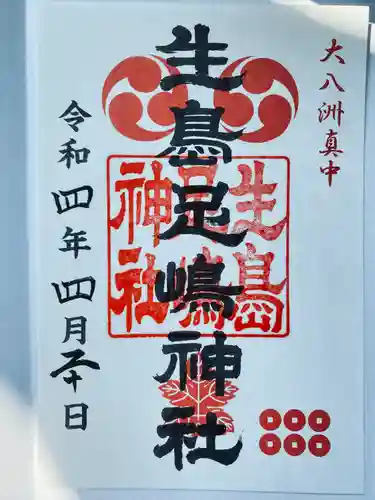 大八洲真中
生島足嶋神社
生島
足嶋
神社
令和四年四月二十日